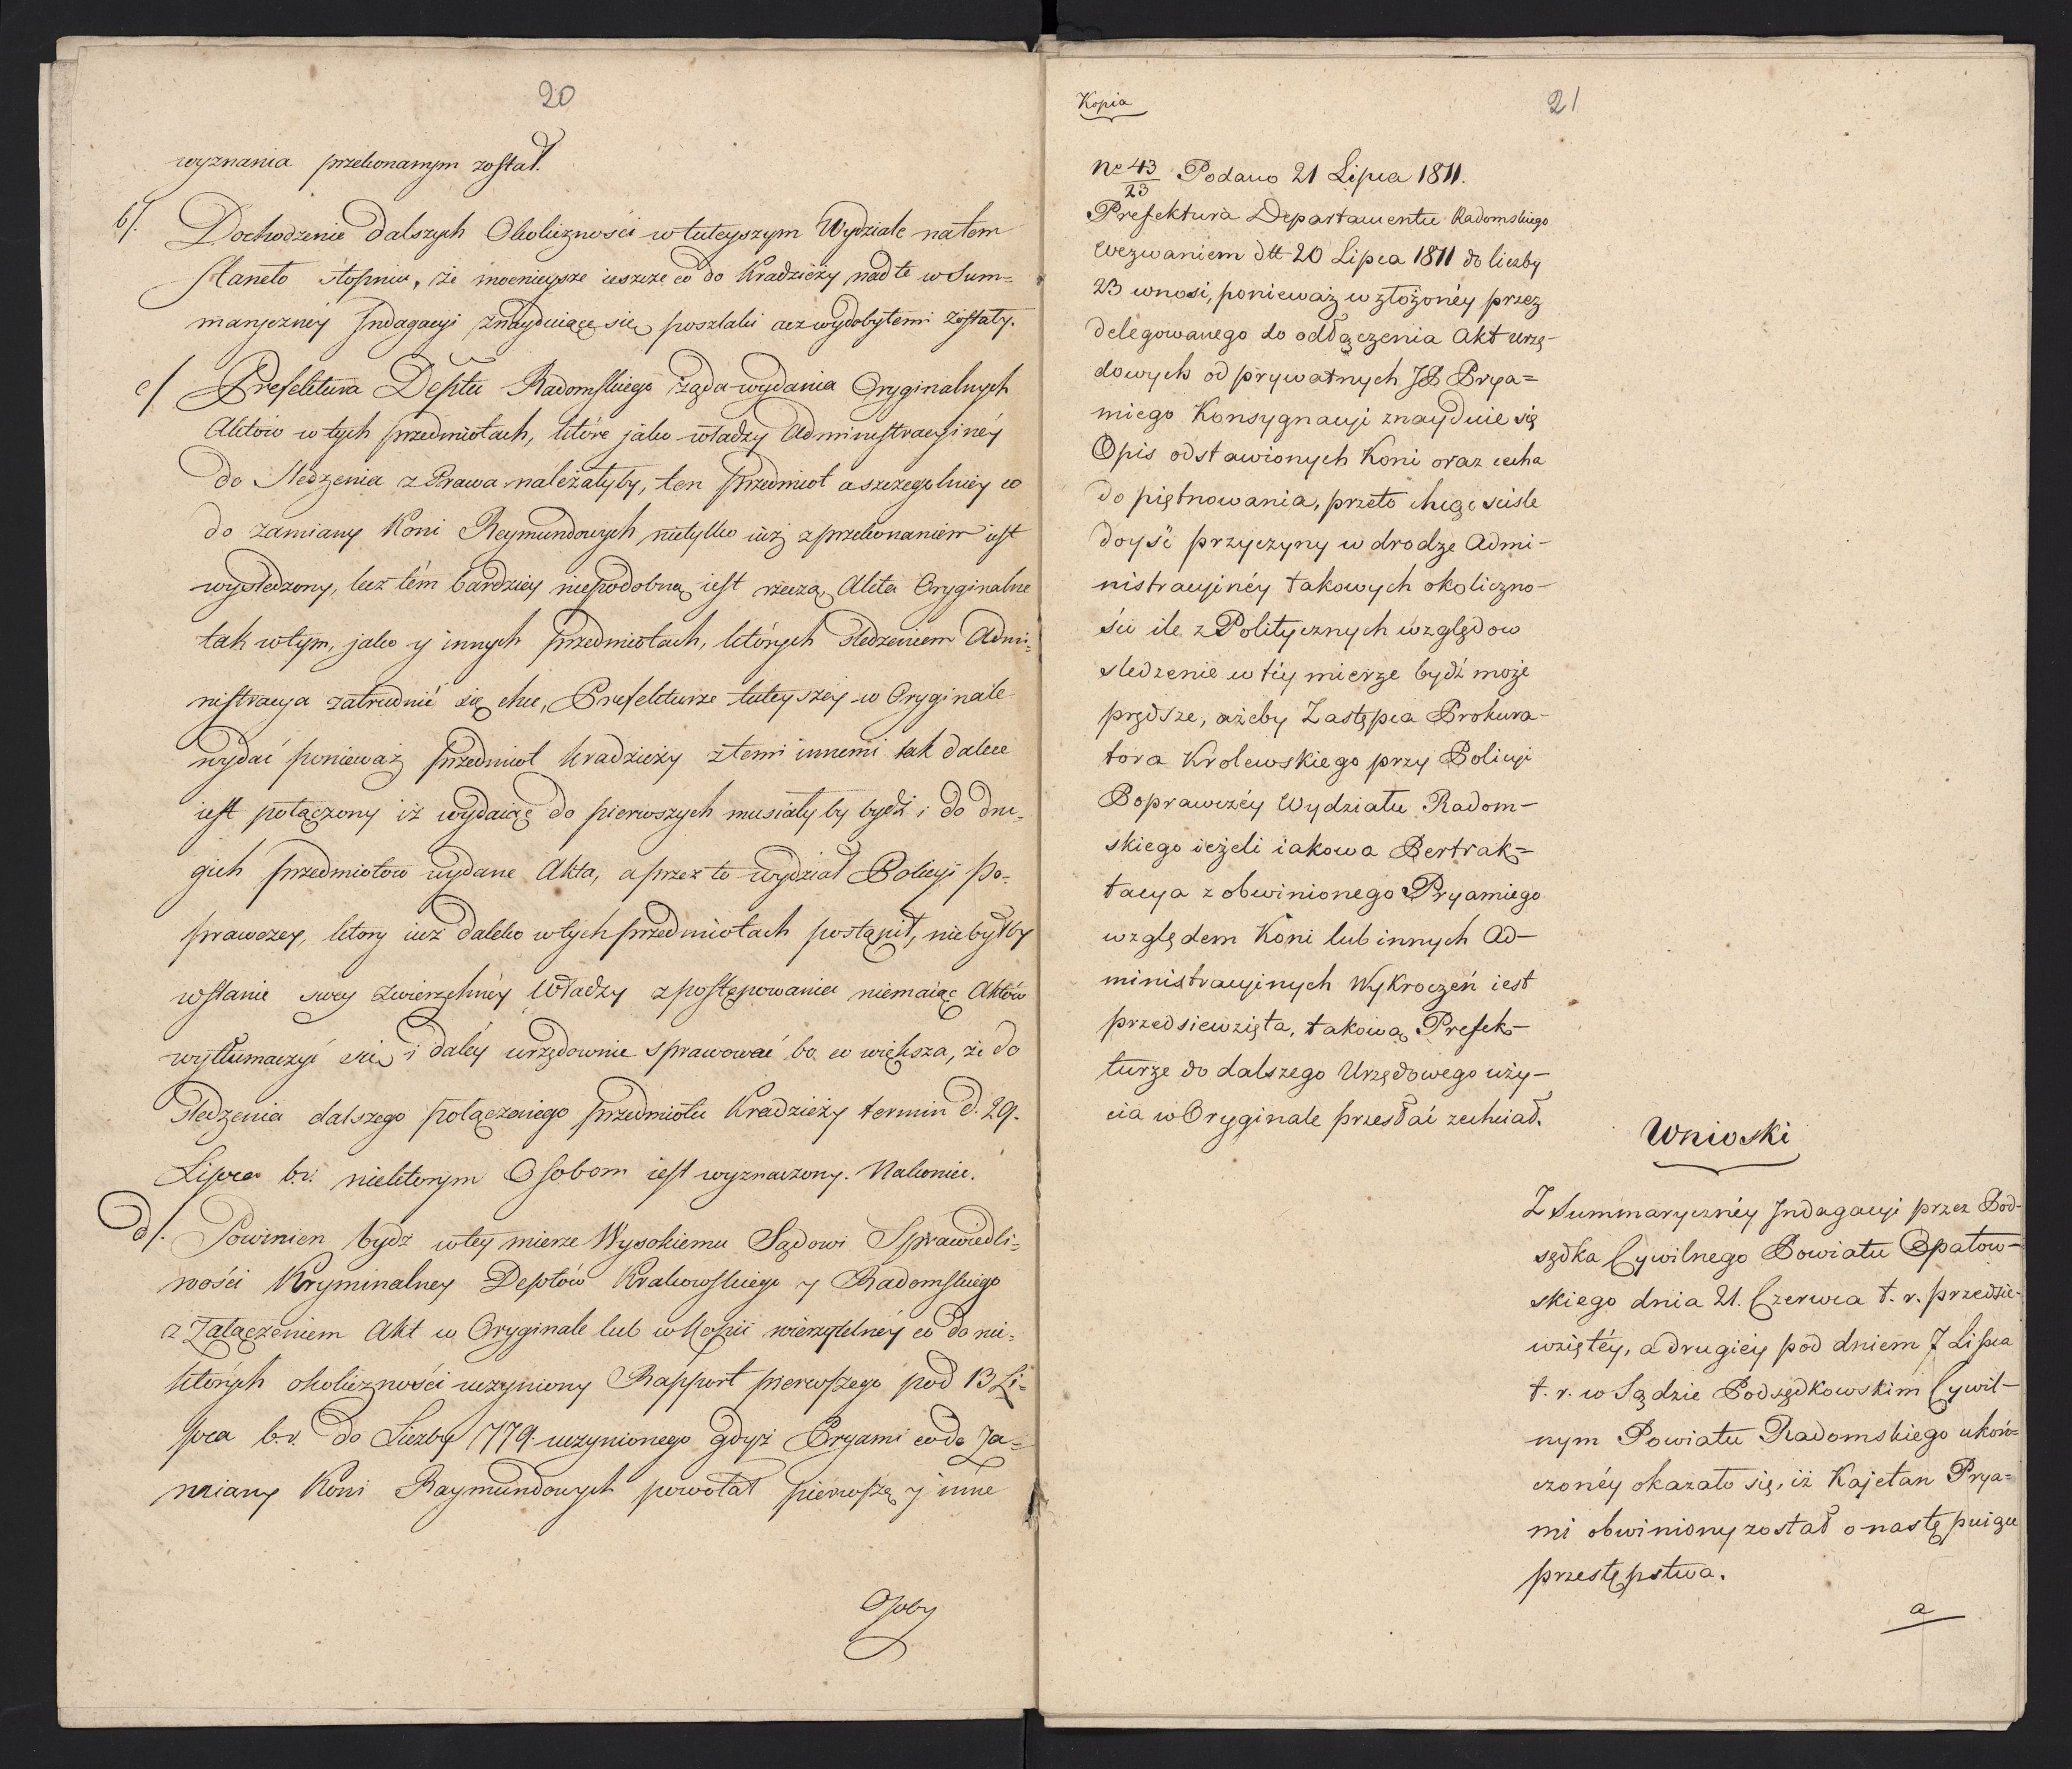 20
wyznania przekonanym został.
b/. Dochodzenie dalszych Okoliczności w tuteyszym Wydziale na tem
staneło stopniu, że mocnieysze ieszcze co do Kradzieży nad te w Sum=
maryczney Indagacyi znayduiące się poszlaki
c/ Prefektura Deptu Radomskiego żąda wydania Oryginalnych
Aktów w tych przedmiotach, które jako władzy Administracyinéy
do sledzenia z Prawa należałyby, ten przedmiot a szczegolniey co
do zamiany Koni Reymundowych nietylko iuż z przekonaniem iest
wysledzony, lecz tém bardziey niepodobną iest rzeczą, Akta Oryginalne
tak w tym, jako y innych przedmiotach, których sledzeniem Admi=
nistracya zatrudnić się chce, Prefekturze tuteyszéy w Oryginale
wydać ponieważ przedmiot kradzieży z temi innemi tak dalece
iest połączony iż wydaiąc do pierwszych musiały by bydź i do dru=
gich przedmiotow wydane Akta, a przez to wydział Policyi Po=
prawczey, ktory iuż daleko w tych przedmiotach postąpił, nie byłby
wstanie swey zwierzchnéy Władzy z postępowania niemaiąc Aktów
wytłumaczyć się i daléy urzędownie sprawować bo co większa, że do
sledzenia dalszego połączonego przedmiotu Kradzieży termin d. 29.
Lipca b.r. niektorym Osobom iest wyznaczony. Nakoniec.
d/. Powinien bydz w tey mierze Wysokiemu Sądowi Sprawiedli=
wości Kryminalney Deptów Krakowskiego y Radomskiego
z Załączeniem Akt w Oryginale lub w Kopii wierzytelnéy co do nie=
których okoliczności uczyniony Rapport pierwszego pod 13 Li=
pca b.r. do Liczby 779. uczynionego gdyż Pryami co do Za=
miany Koni Raymundowych powołał pierwszą y inne
Osoby
Kopia
21
No 43/23 Podano 21 Lipca 1811.
Prefektura Departamentu Radomskiego
Wezwaniem dtt 20 Lipca 1811 do liczby
23 wnosi, ponieważ w złożonéy przez
delegowanego do odłączenia Akt urzę-
dowych od prywatnych JP Prya=
miego Konsygnacyi znayduie się
Opis odstawionych Koni oraz cecha
do piętnowania, przeto chcąc scisle
doyść przyczyny w drodze Admi-
nistracyinéy takowych okoliczno-
ści ile z Politycznych względow
sledzenie w téy mierze bydź może
prędsze, ażeby Zastępca Prokura-
tora Krolewskiego przy Policyi
Poprawczéy Wydziału Radom-
skiego ieżeli iakowa Pertrak=
tacya z obwinionego Pryamiego
względem Koni lub innych Ad-
ministracyinych Wykroczeń iest
przedsiewzięta, takową Prefek-
turze do dalszego Urzędowego uży-
cia w Oryginale przesłać zechciał.
Wnioski
Z Summarycznéy Indagacyi przez Pod-
sędka Cywilnego Powiatu Opatow-
skiego dnia 21. Czerwca t.r. przedsie-
wziętéy, a drugiéy pod dniem 7 Lipca
t.r. w Sądzie Podsędkowskim Cywil-
nym Powiatu Radomskiego ukoń=
czonéy okazało się, iż Kajetan Prya=
mi obwiniony został o następuiące
przestępstwa.
a